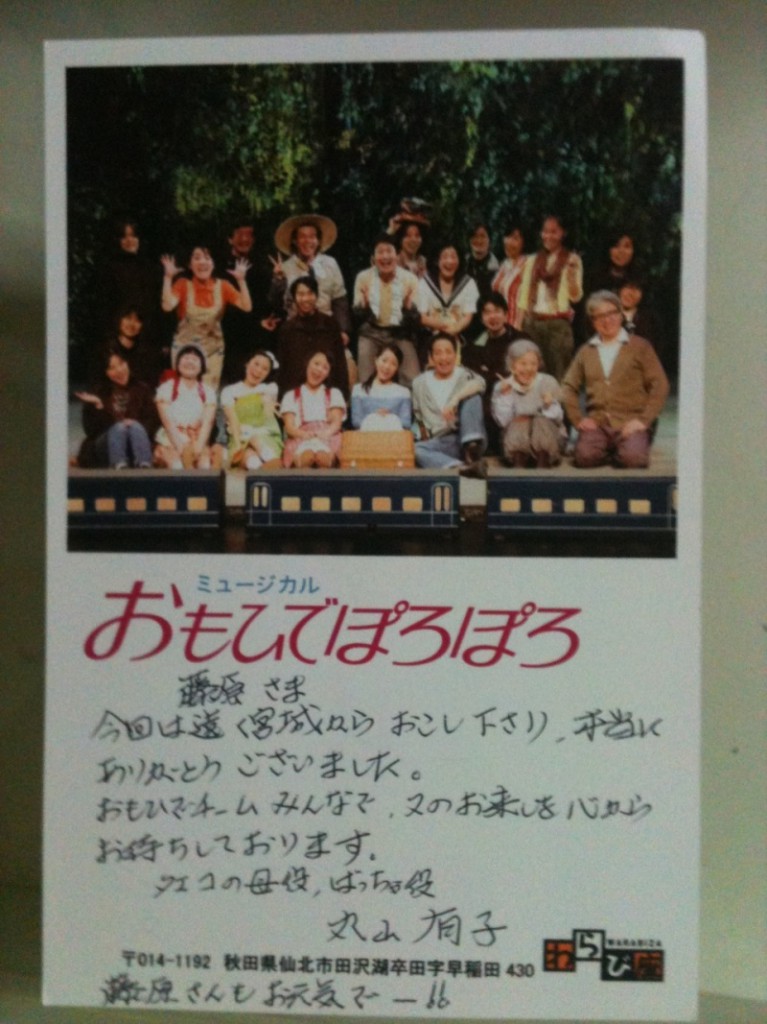 ミュージカル
おもひでぽろぽろ
藤原さま
今回は遠く宮城からおこし下さり、本当に
ありがとうございました。
おもひでチームみんなで、又のお来しを心から
お待ちしております。
タエコの母役、ばっちゃ役
丸山有子
わらび座
WARABIZA
〒014-1192 秋田県仙北市田沢湖卒田字早稲田430
藤原さんもお元気でー!!